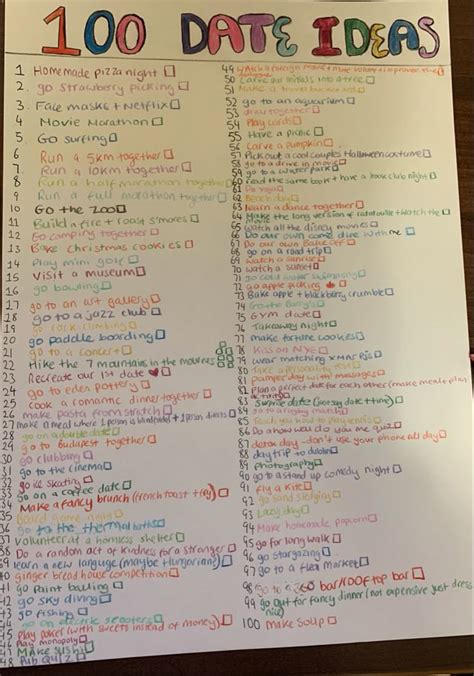 100 DATE IDEAS
1 Homemade pizza night
2. go strawberry picking
3. Face masks + Netflix
4 Movie Marathon
5 GO surfing
6 Run a 5km together
7 Run a 10km together
8 Run a half marathon together
9 Run a full marathon together
10 GO the ZOO
11 Build a fire + roast s'mores
12 Go camping together
13 Bake christmas cookies
14 Play mini golf
15 Visit a museum
16 go bowling
17 go to an art gallery
18 go to a jazz club
19 go rock climbing
20 go paddle boarding
21 go to a concert
22 Hike the 7 mountains in the mournes
23 Recreate our 1st date
24 go to eden pottery
25 cook a romantic dinner together
26 make pasta from stratch
27 make a meal where 1 person is blindfolded + 1 person directs
28 go on a double date
29 go to Budapest together
30 go clubbing
31 go to the cinema
32 ice skating
33 go on a coffee date
34 Make a fancy brunch (french toast + fry)
35 Board game night
36 go to the thermal baths
37 volunteer at a homeless shelter
38 Do a random act of kindness for a stranger
39 learn a new language (maybe Hungarian)
40 ginger bread house competition
41 go Paint balling
42 go sky diving
43 go fishing
44 go on electric scooters
45 Play poker (with sweets instead of money)
46 Play monopoly
47 Make sushi
48 Pub Quiz
49 Watch a foreign movie +
50 Carve our initials into a tree
51 Make a
52 go to an aquarium
53 draw together
54 Play cards
55 Have a picnic
56 Carve a pumpkin
57 Pick out a cool couples Halloween costume
58 go to a drive in movie
59 go to a water park
60 read the same book + have a book club night
61 Do yoga
62 Beach day
63 learn a dance together
64 Make the long version of ratatouille + watch the movie
65 watch all the disney movies
66 Do our own come dine with me
67 Do our own Bake off
68 go on a road trip
69 watch a sunrise
70 watch a sunset
71 go cold water swimming
72 go apple picking
73 Bake apple + blackberry crumble
74 Go to the
75 GYM date
76 Takeaway night
77 make fortune cookies
78 Kiss on NYE
79 wear matching XMAS PJs
80 Take a personality test
81 pamper day with massages
82 Plan a perfect date for each other (make meal + plan activity)
83 Surprise date (not say date + time)
84 go to a rugby match
85 Teach you how to play
86 Do a how well do you know me quiz
87 detox day - don't use your phone all day
88 day trip to dublin
89 photography
90 go to a stand up comedy night
91 fly a kite
92 go sand sledging
93 Lazy day
94 Make homemade popcorn
95 go for long walk
96 go stargazing
97 go to a flea market
98 go to a 360 bar/ROOF top bar
99 go out for fancy dinner (not expensive yet dress nice)
100 make soup